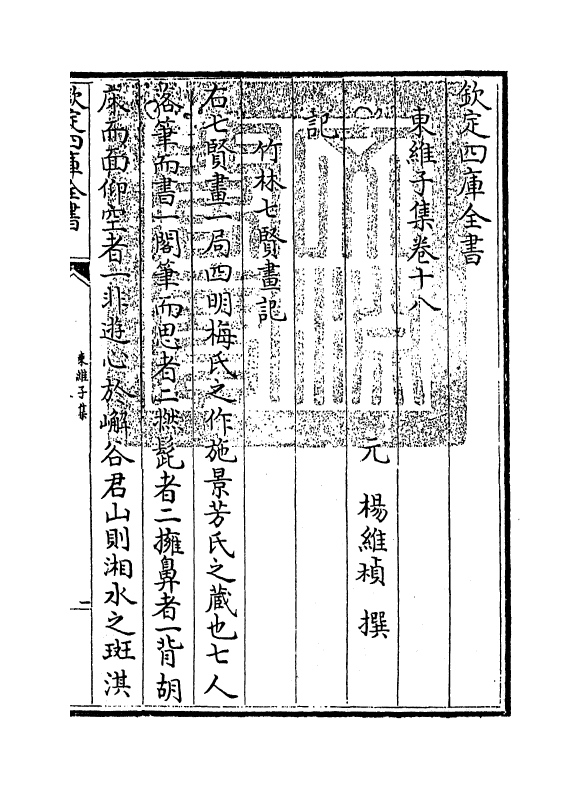 欽定四庫全書
東維子集卷十八
元 楊維楨 撰
記
竹林七賢畫記
右七賢畫一局四明梅氏之作施景芳氏之藏也七人
落筆而書一閣筆而思者二撚髭者二擁鼻者一背胡
床而面仰空者一非遊心於嶰谷君山則湘水之斑淇
欽定四庫全書
東維子集
一